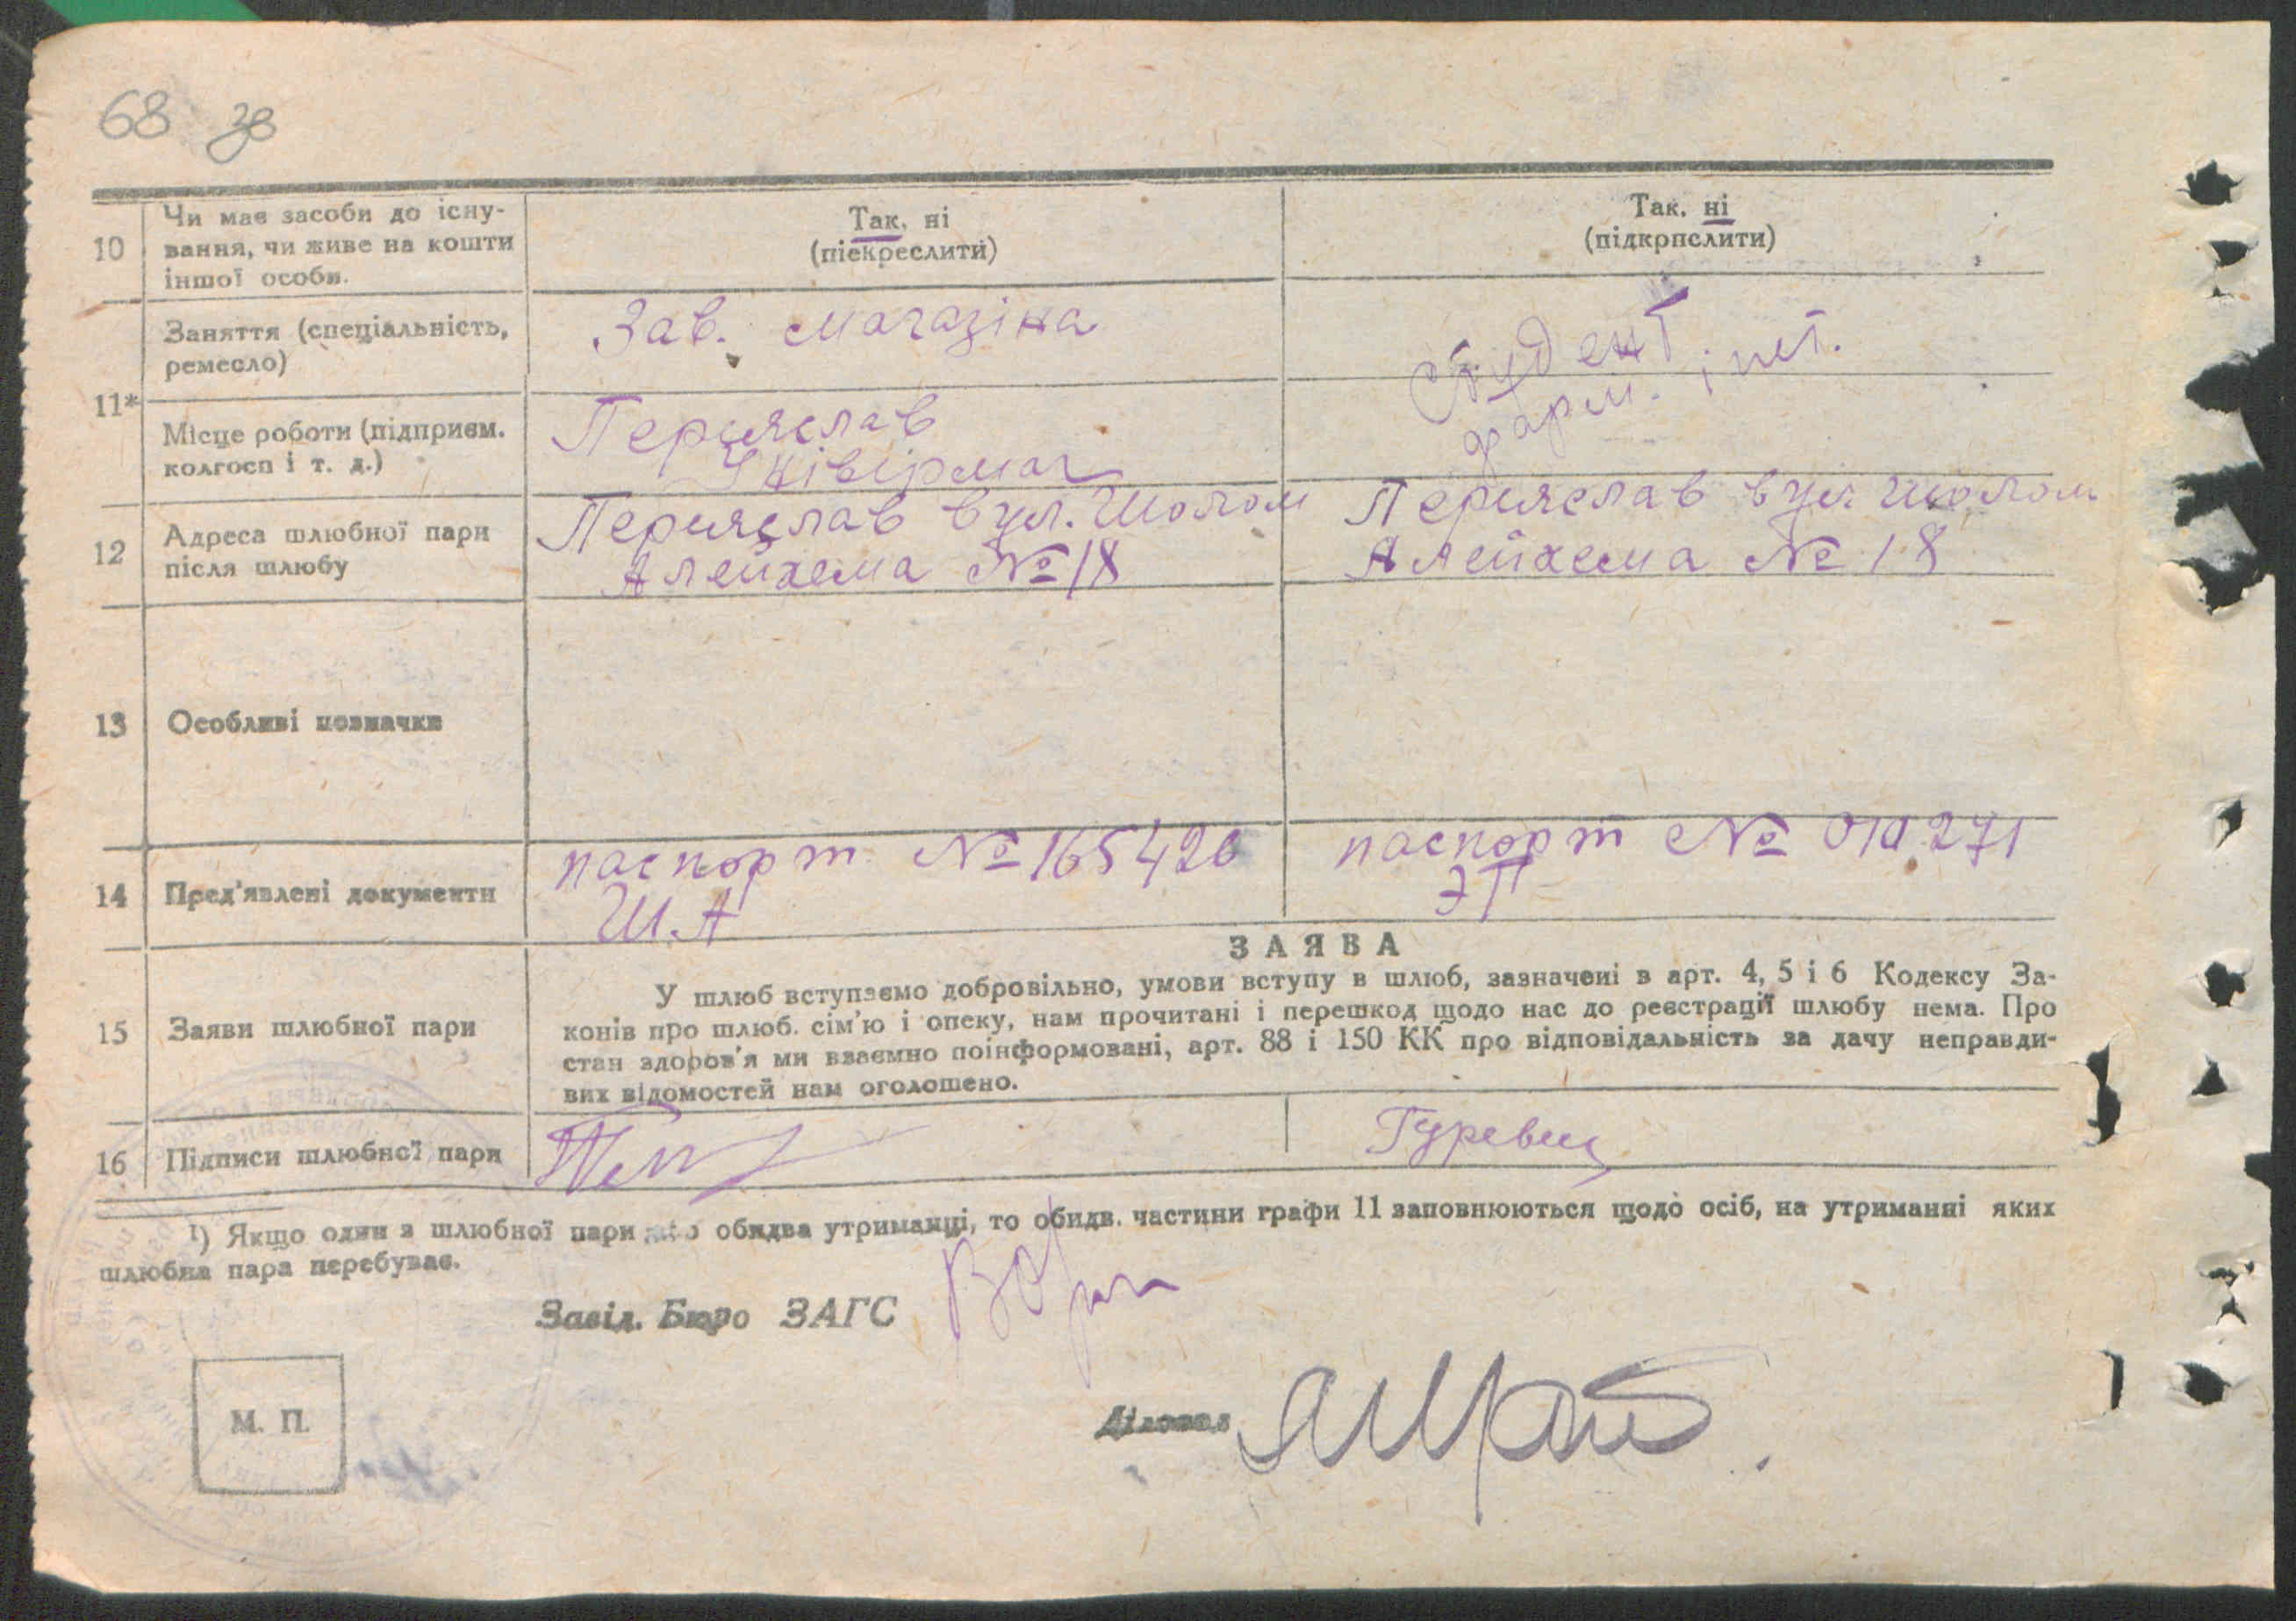 68 зв
10
Чи має засоби до існу-
вання, чи живе на кошти
іншої особи.
Так, ні
(піекреслити)
Так. ні
(підкрпслити)
11*
Заняття (спеціальність,
ремесло)
Зав. магазіна
Студент
фарм. інст.
Місце роботи (підприєм.
колгосп і т. д.)
Переяслав
Унівірмаг
12
Адреса шлюбної пари
після шлюбу
Переяслав вул. Шолом
Алейхема № 18
Переяслав вул. Шолом
Алейхема № 18
13
Особливі позначки
14
Пред'явлені документи
паспорт № 165426
Ш.А
паспорт № 010271
ЭП
15
Заяви шлюбної пари
ЗАЯВА
У шлюб вступаємо добровільно, умови вступу в шлюб, зазначені в арт. 4, 5 і 6 Кодексу За-
конів про шлюб. сім'ю і опеку, нам прочитані і перешкод щодо нас до реєстрації шлюбу нема. Про
стан здоров'я ми взаємно поінформовані, арт. 88 і 150 КК про відповідальність за дачу неправди-
вих відомостей нам оголошено.
16
Підписи шлюбної пари
Гуревич
¹) Якщо один з шлюбної пари або обидва утриманці, то обидв. частини графи 11 заповнюються щодо осіб, на утриманні яких
шлюбна пара перебуває.
Завід. Бюро ЗАГС
М. П.
Діловод